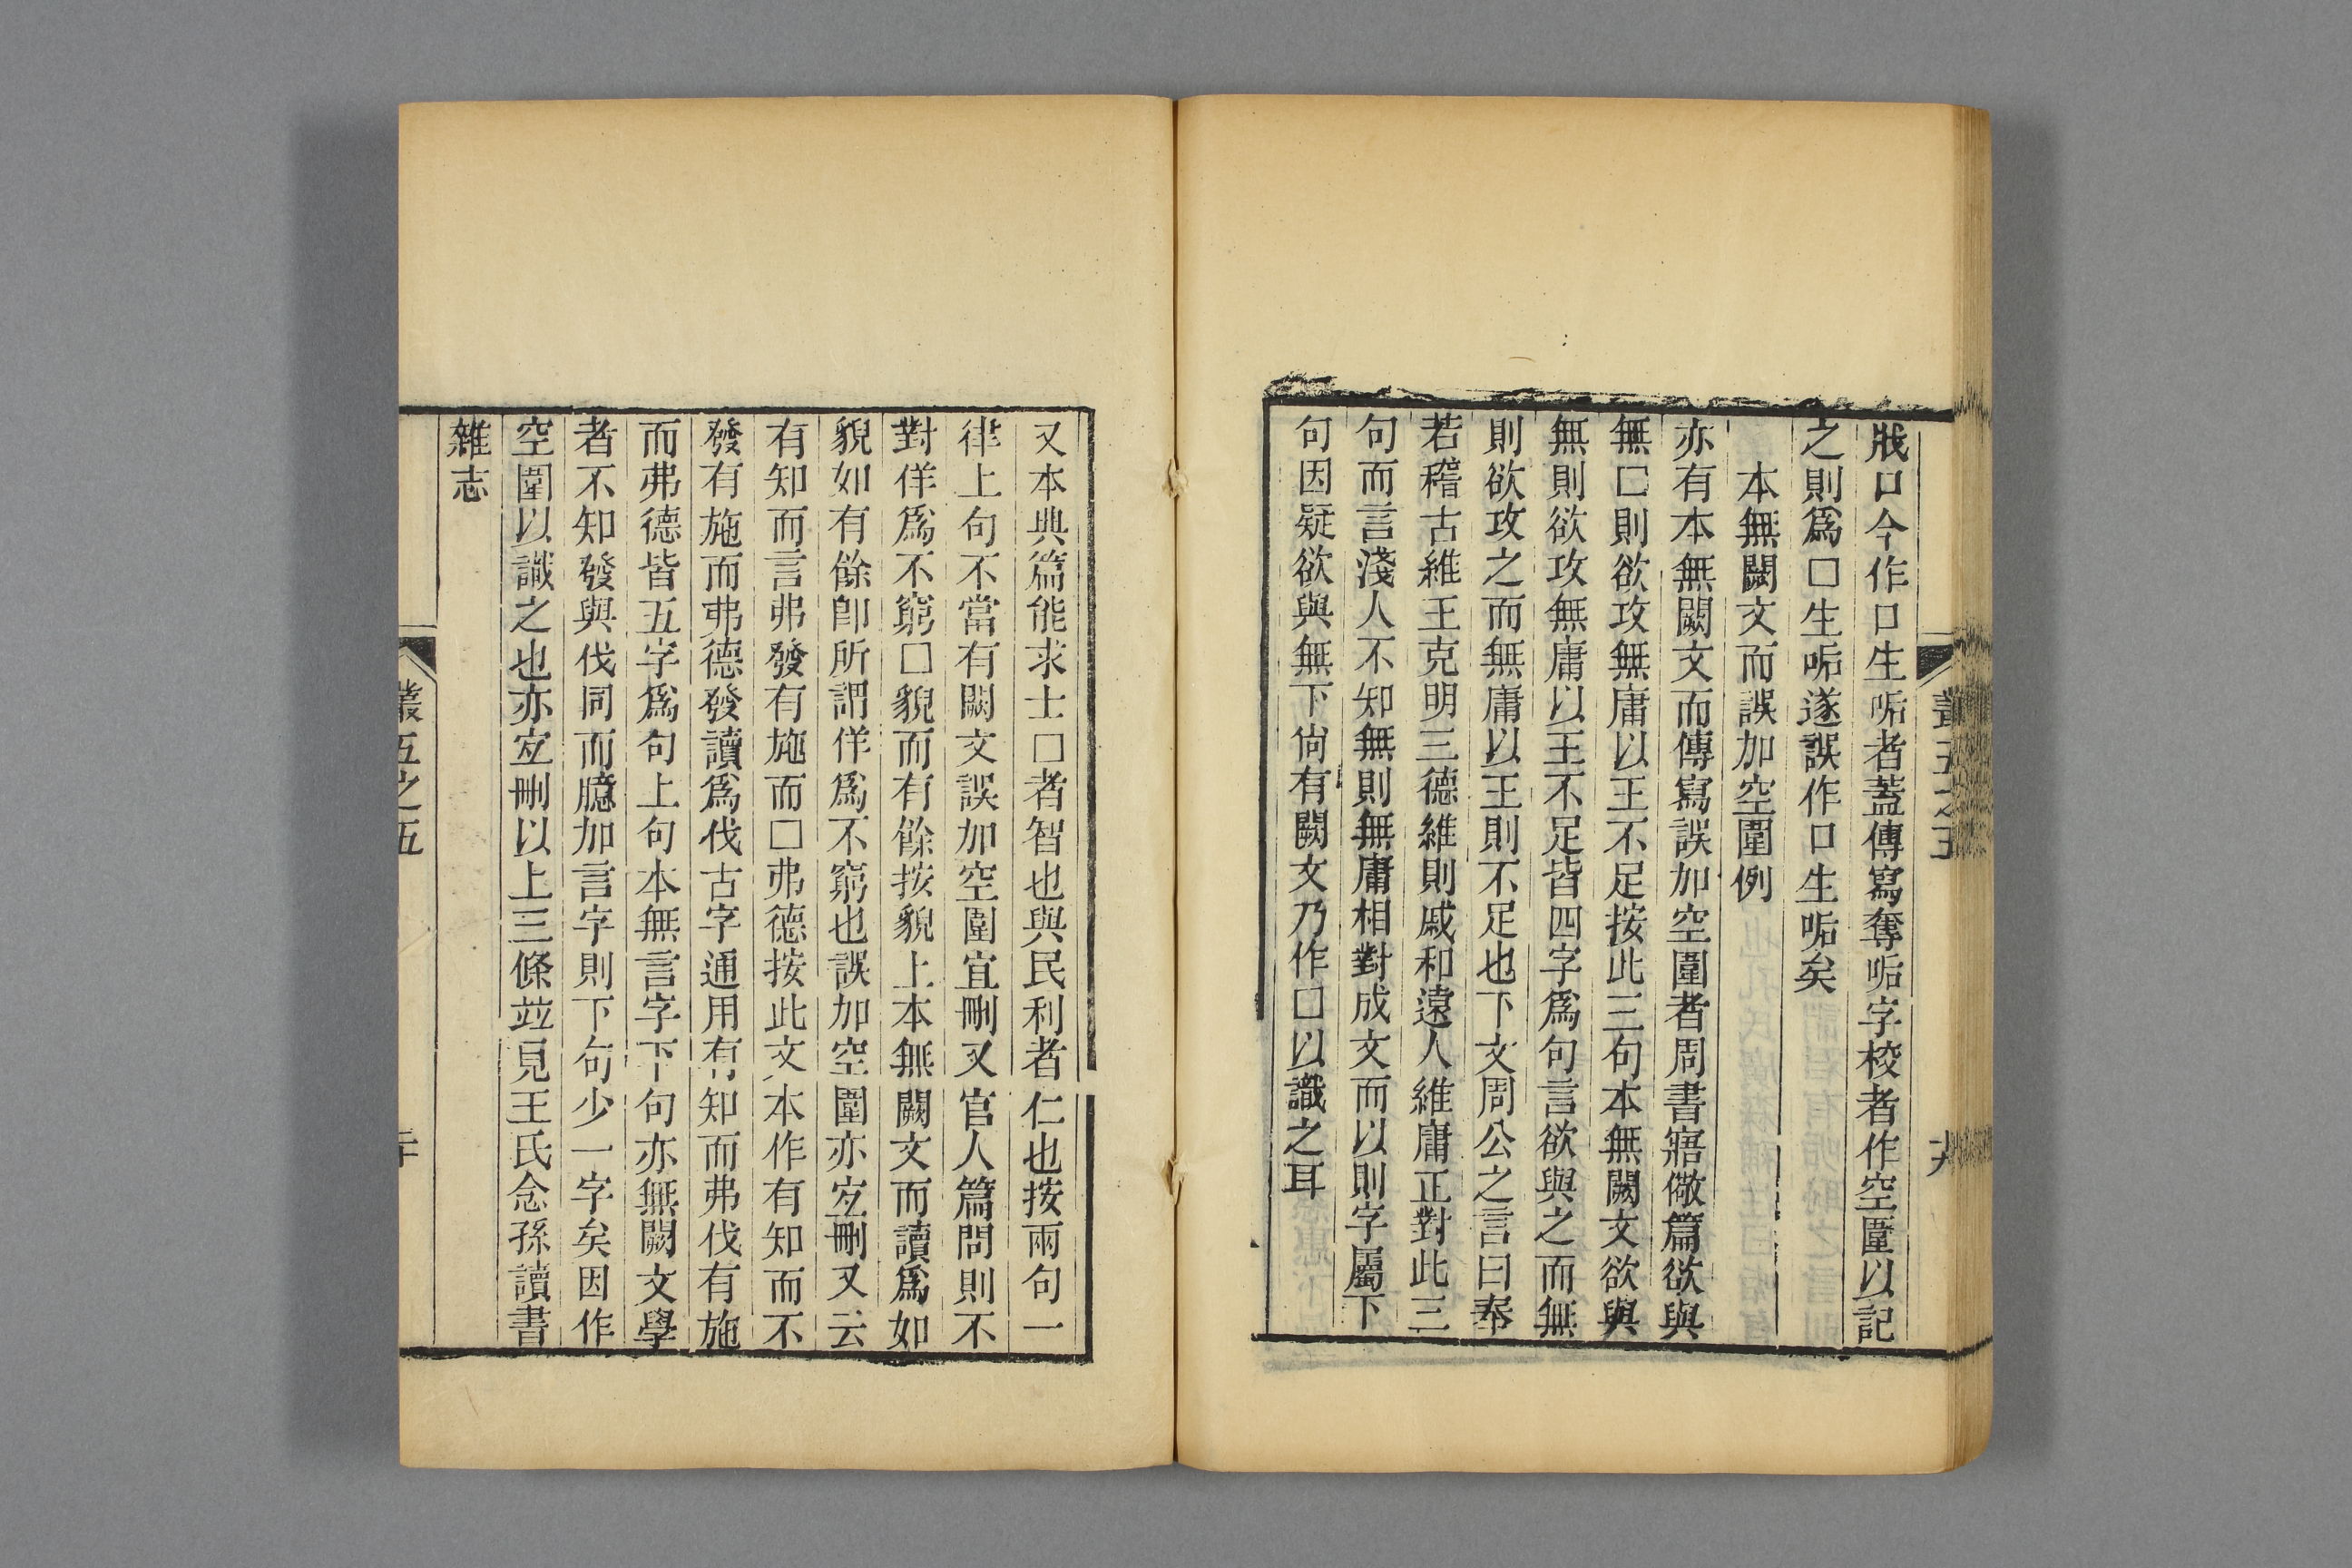 戕口今作口生㖃者蓋傳寫奪㖃字校者作空圍以記
之則爲□生㖃遂誤作口生㖃矣
本無闕文而誤加空圍例
亦有本無闕文而傳寫誤加空圍者周書寤儆篇欲與
無□則欲攻無庸以王不足按此三句本無闕文欲與
無則欲攻無庸以王不足皆四字爲句言欲與之而無
則欲攻之而無庸以王則不足也下文周公之言曰奉
若稽古維王克明三德維則戚和遠人維庸正對此三
句而言淺人不知無則無庸相對成文而以則字屬下
句因疑欲與無下尙有闕文乃作□以識之耳
叢五之五
又本典篇能求士□者智也與民利者仁也按兩句一
律上句不當有闕文誤加空圍宜刪又官人篇問則不
對佯爲不窮□貌而有餘按貌上本無闕文而讀爲如
貌如有餘卽所謂佯爲不窮也誤加空圍亦宐刪又云
有知而言弗發有施而□弗德按此文本作有知而不
發有施而弗德發讀爲伐古字通用有知而弗伐有施
而弗德皆五字爲句上句本無言字下句亦無闕文學
者不知發與伐同而臆加言字則下句少一字矣因作
空圍以識之也亦宐刪以上三條竝見王氏念孫讀書
雜志
叢五之五